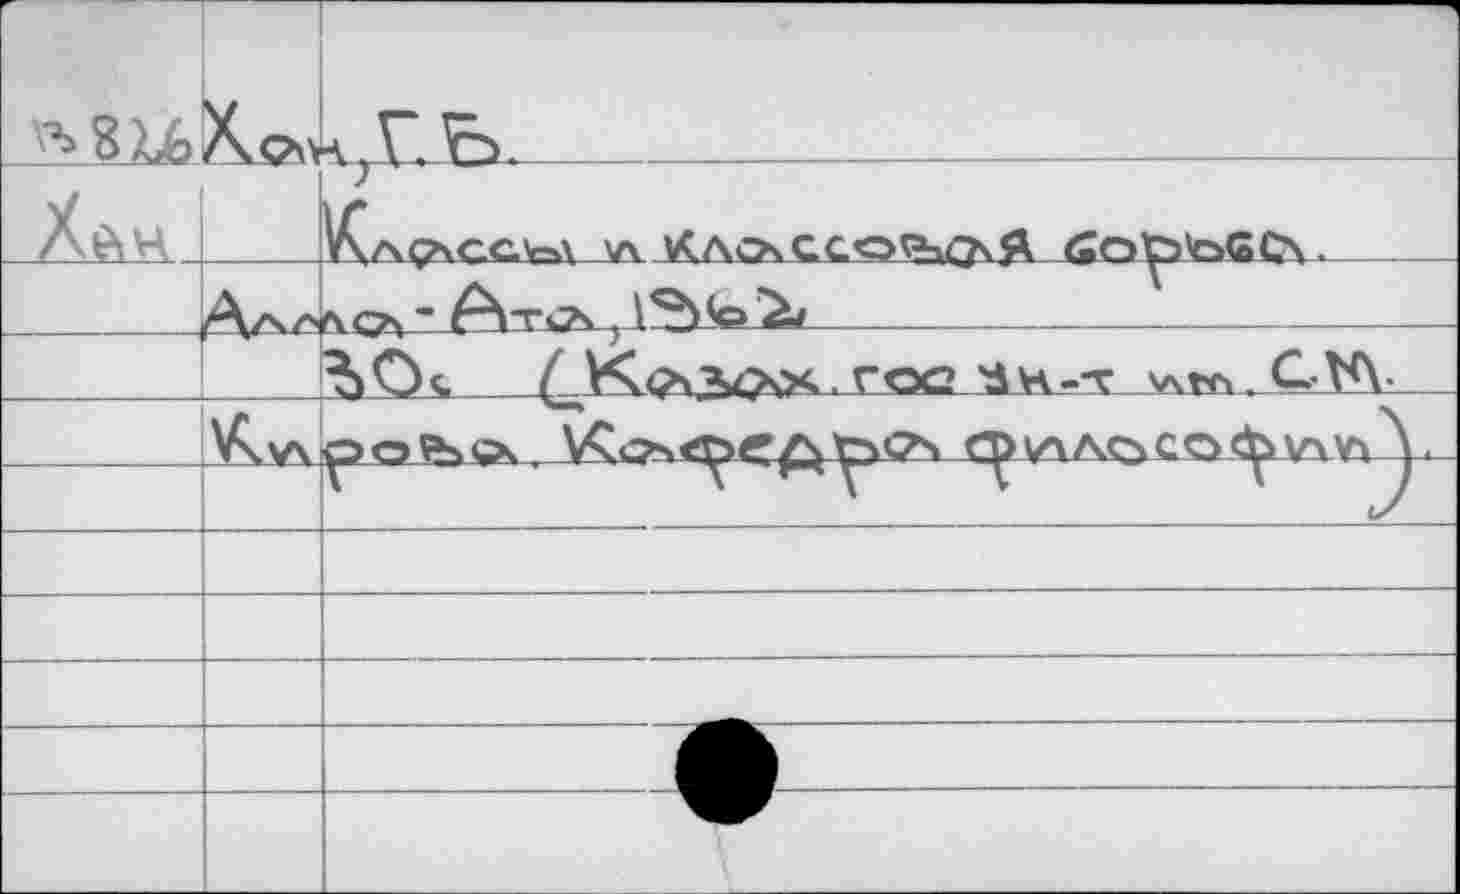 Хан, Г. Б.
Хан
Классы и классовая борьба.
Алма-Ата, 1962.
30с. (Казах. гос ун-т им. С.М.
Кирова. Кафедра философии).